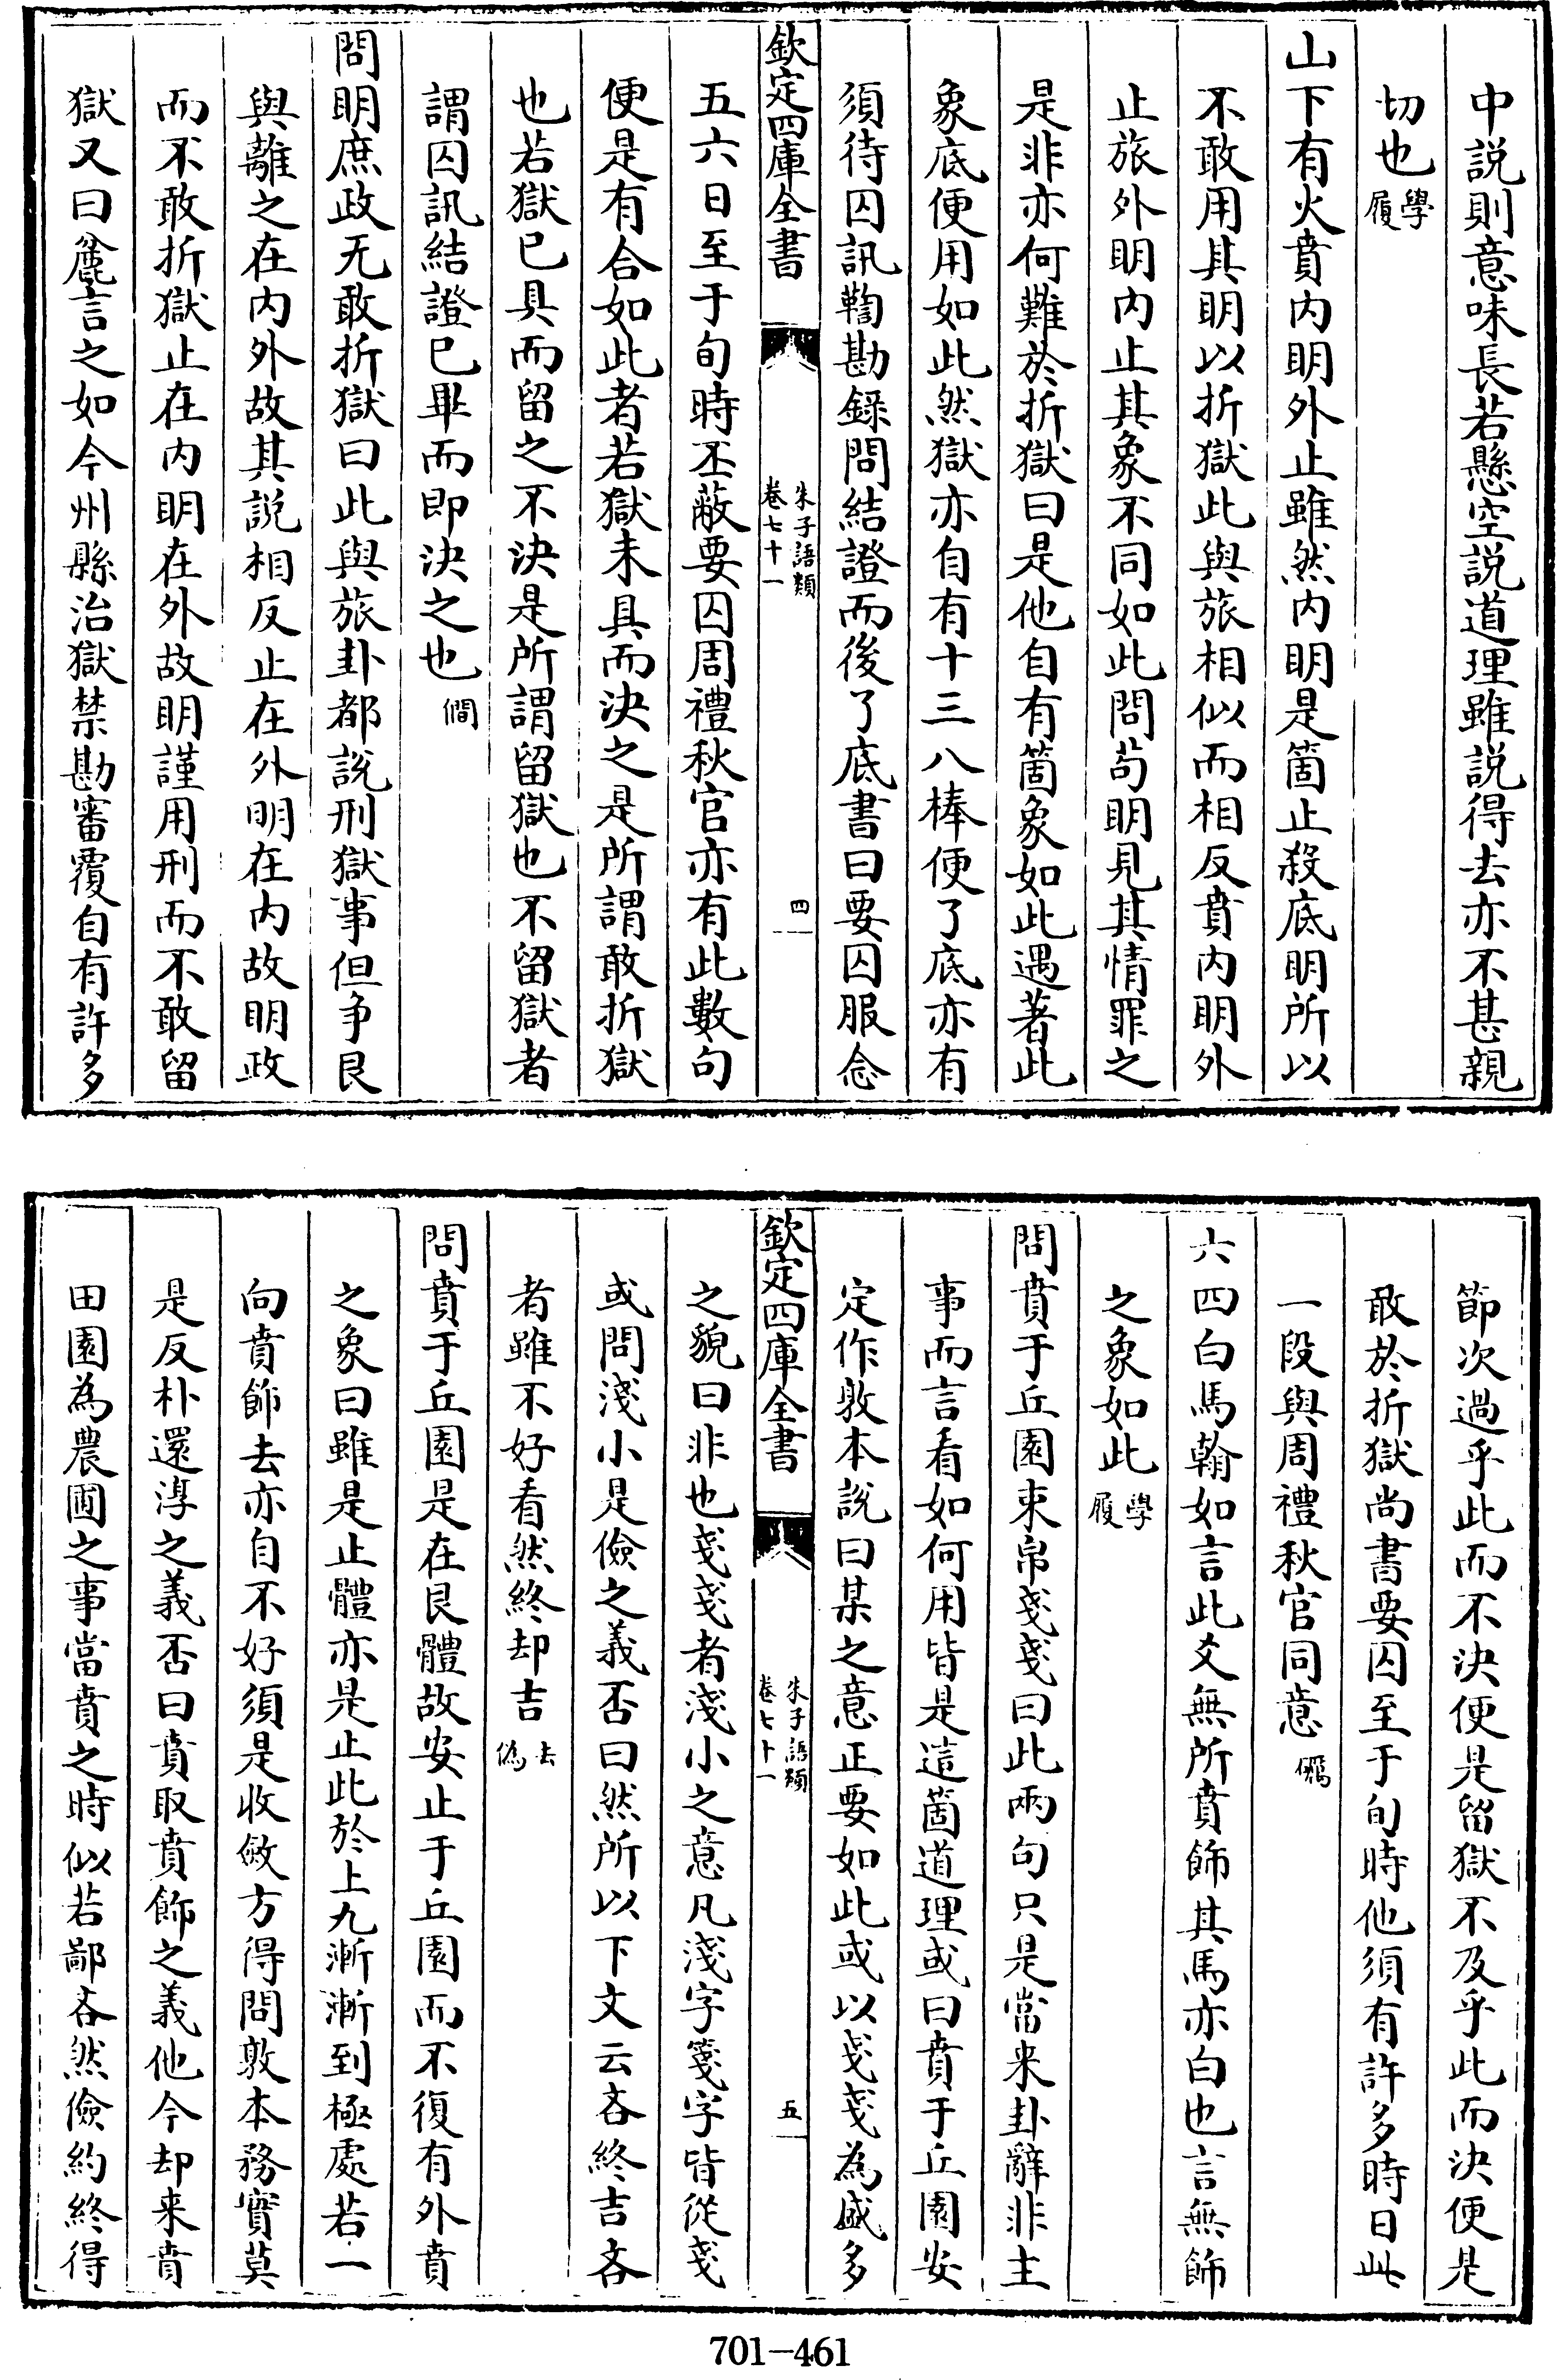 中説則意味長若懸空説道理雖説得去亦不甚親
切也學履
山下有火賁内明外止雖然内明是箇止殺底明所以
不敢用其明以折獄此與旅相似而相反賁内明外
止旅外明内止其象不同如此問苟明見其情罪之
是非亦何難於折獄曰是他自有箇象如此遇著此
象底便用如此然獄亦自有十三八棒便了底亦有
須待囚訊鞫勘録問結證而後了底書曰要囚服念
欽定四庫全書
朱子語類
卷七十一
四
五六日至于旬時丕蔽要囚周禮秋官亦有此數句
便是有合如此者若獄未具而決之是所謂敢折獄
也若獄已具而留之不決是所謂留獄也不留獄者
謂囚訊結證已畢而即決之也僩
問明庶政无敢折獄曰此與旅卦都説刑獄事但争艮
與離之在内外故其説相反止在外明在内故明政
而不敢折獄止在内明在外故明謹用刑而不敢留
獄又曰麄言之如今州縣治獄禁勘審覆自有許多
節次過乎此而不決便是留獄不及乎此而決便是
敢於折獄尚書要囚至于旬時他須有許多時日此
一段與周禮秋官同意
六四白馬翰如言此爻無所賁飾其馬亦白也言無飾
之象如此學履
問賁于丘園束帛戔戔曰此兩句只是當来卦辭非主
事而言看如何用皆是這箇道理或曰賁于丘園安
定作敦本説曰某之意正要如此或以戔戔為盛多
欽定四庫全書
朱子語類
卷七十一
五
之貌曰非也戔戔者淺小之意凡淺字箋字皆從戔
或問淺小是儉之義否曰然所以下文云吝終吉吝
者雖不好看然終却吉去偽
問賁于丘園是在艮體故安止于丘園而不復有外賁
之象曰雖是止體亦是止此於上九漸漸到極處若一
向賁飾去亦自不好須是收斂方得問敦本務實莫
是反朴還淳之義否曰賁取賁飾之義他今却来賁
田園為農圃之事當賁之時似若鄙吝然儉約終得
701-461